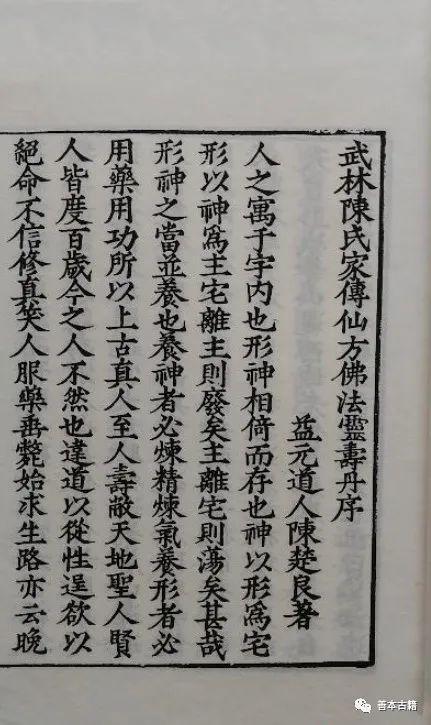 武林陳氏家傳仙方佛法靈壽丹序
益元道人陳楚良著
人之寓于宇內也形神相倚而存也神以形爲宅
形以神爲主宅離主則廢矣主離宅則蕩矣甚哉
形神之當並養也養神者必煉精煉氣養形者必
用藥用功所以上古真人至人壽敝天地聖人賢
人皆度百歲今之人不然也違道以從性逞欲以
絕命不信修真矣人服藥垂斃始求生路亦云晚
善本古籍